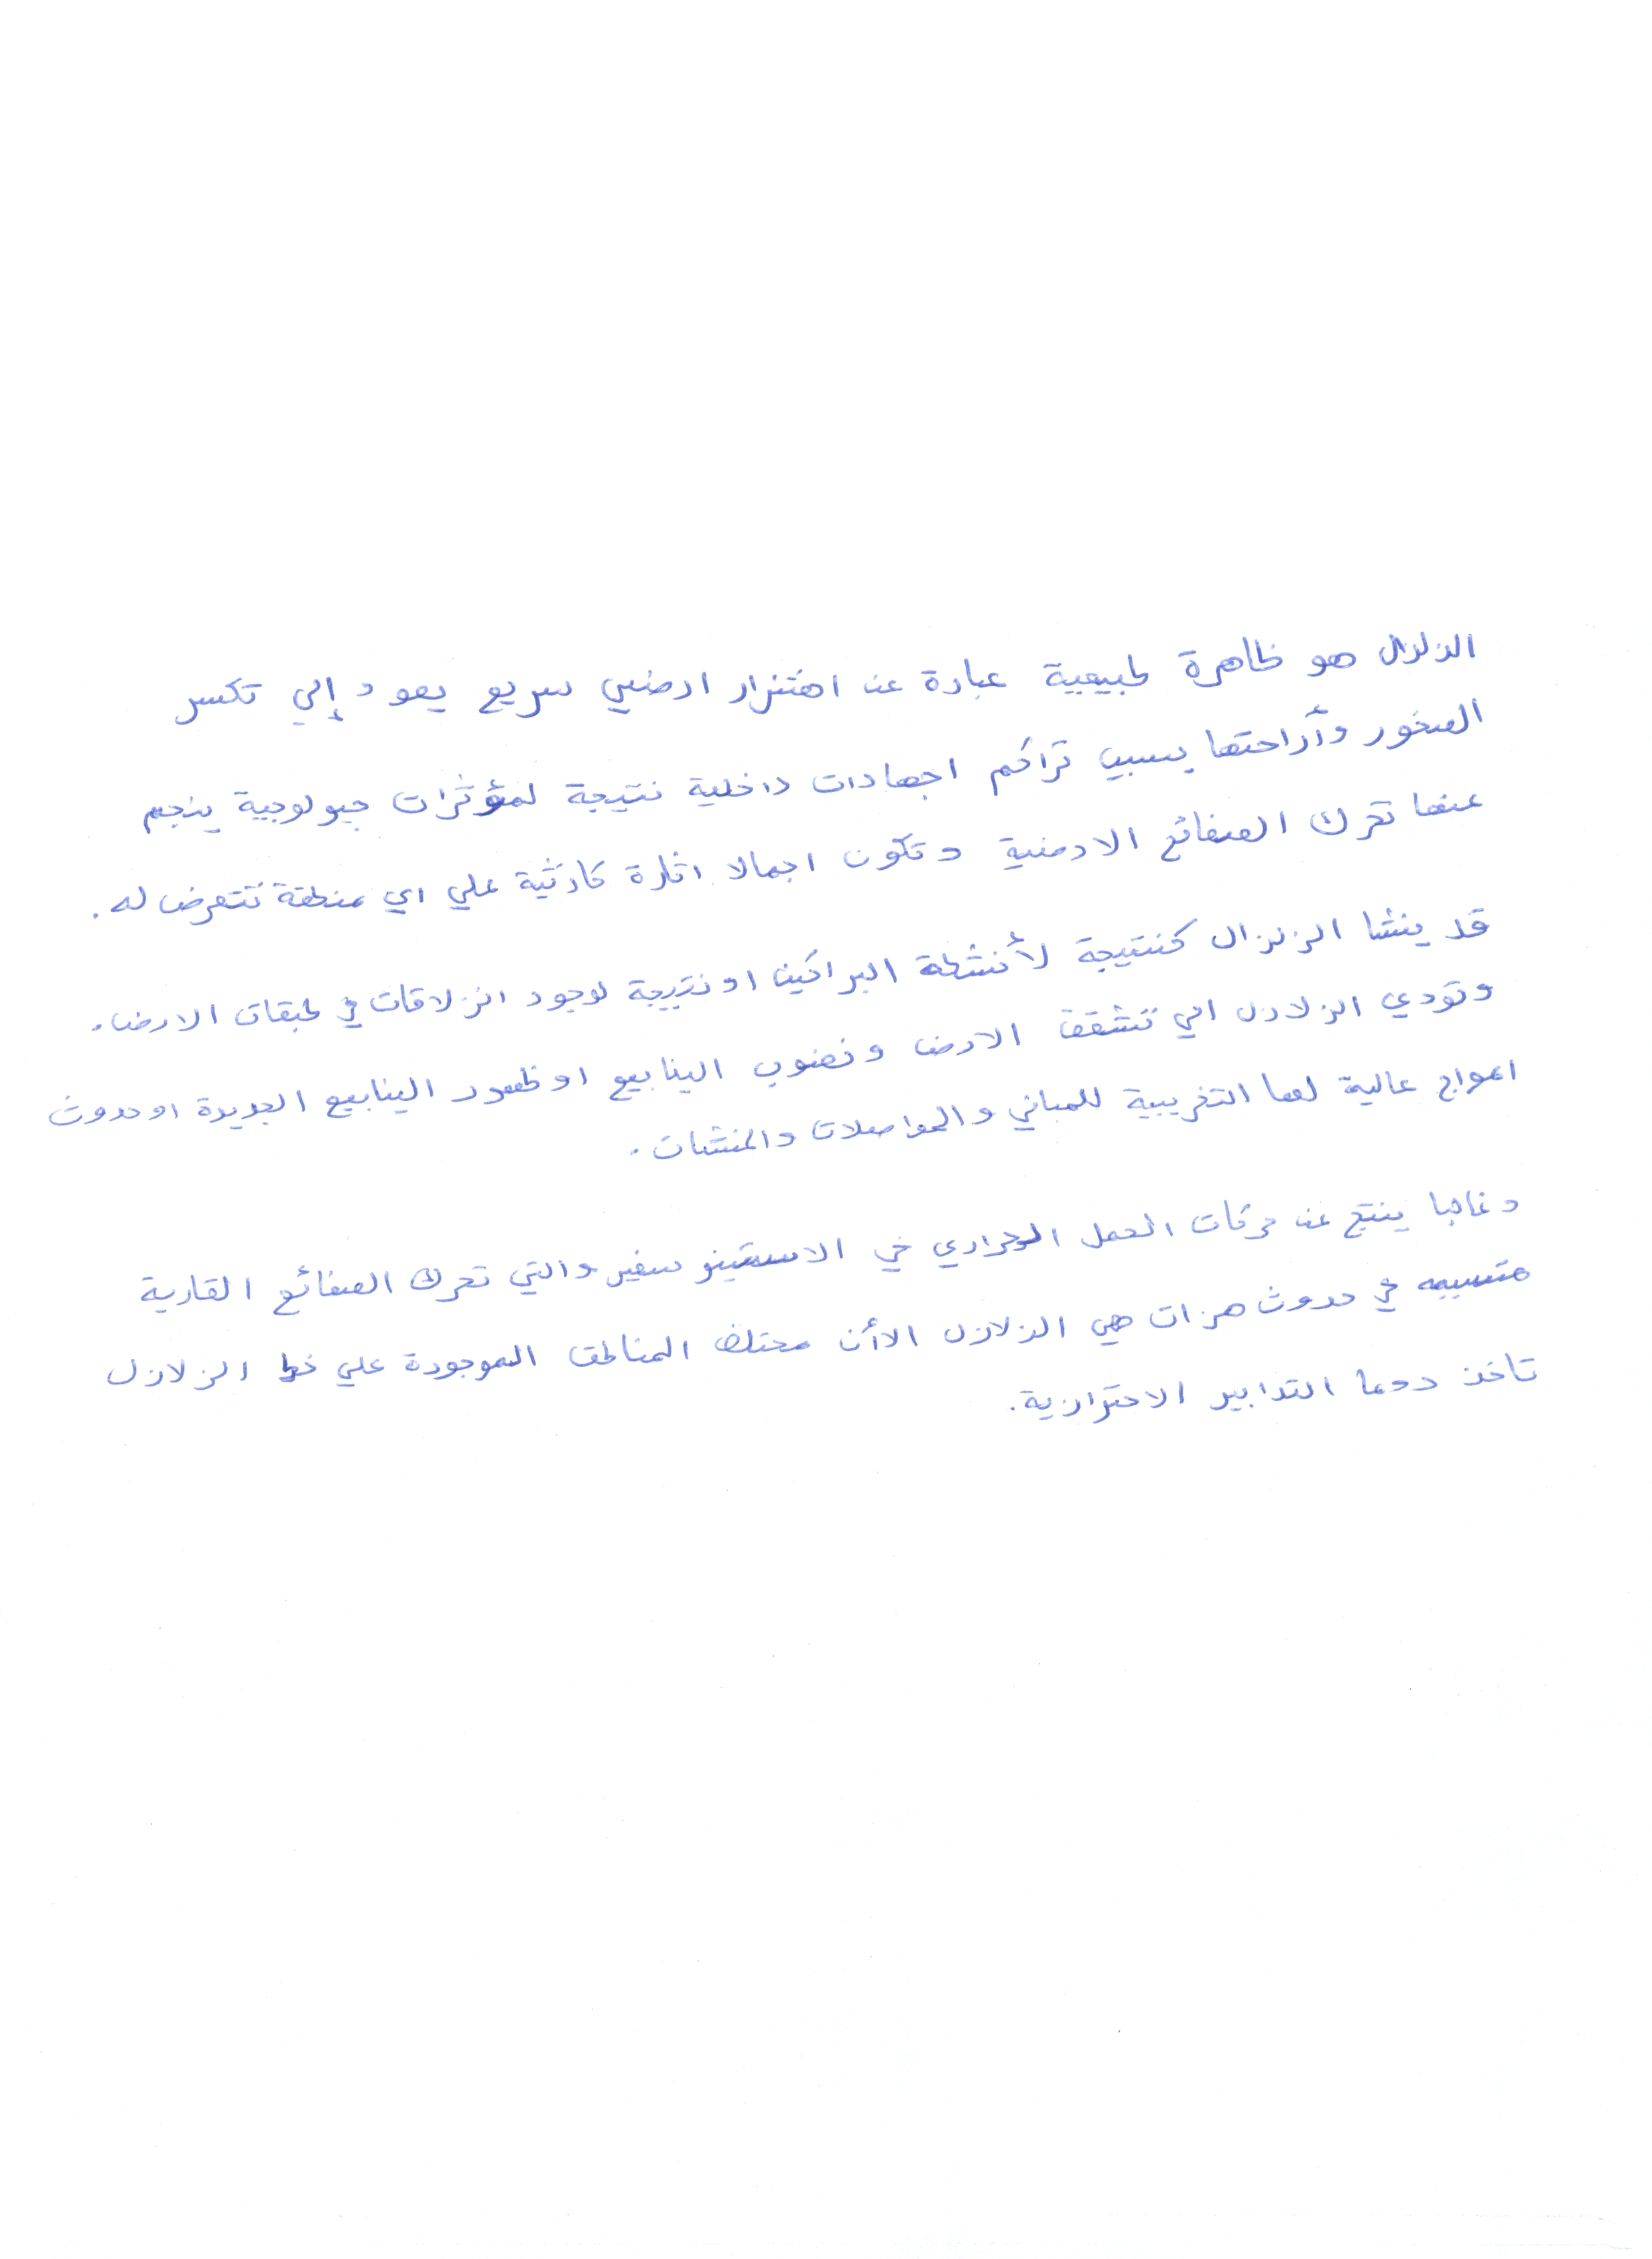 الزلزال هو ظاهرة طبيعية عبارة عن اهتزاز ارضي سريع يعود إلي تكسر
الصخور وأزاحتها بسبب تراكم اجهادات داخلية نتيجة لمؤثرات جيولوجية ينجم
عنها تحرك الصفائح الارضية وتكون اجمالا اثارة كارثية علي اي منطقة تتعرض له.
قد ينشا الزلزال كنتيجة لأنشطة البراكين او نتيجة لوجود انزلاقات في طبقات الارض.
وتودي الزلازل الي تشقق الارض ونضوب الينابيع او ظهور الينابيع الجديدة او حدوث
امواج عالية لها التخريبية للمباني والمواصلات والمنشات.
وغالبا ينتج عن حركات الحمل الحراري في الاستينو سفير والتي تحرك الصفائح القارية
متسببه في حدوث هزات هي الزلازل الاأن مختلف المناطق الموجودة علي خط الزلازل
تاخذ دوما التدابير الاحترازية.